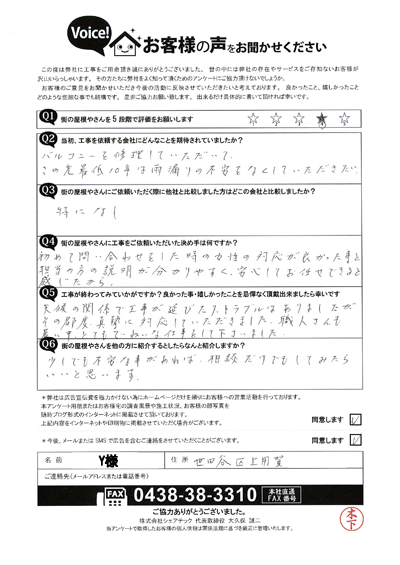 Voice!
お客様の声をお聞かせください
この度は弊社に工事をご用命頂き誠にありがとうございました。世の中には弊社の存在やサービスをご存知ないお客様が
沢山いらっしゃいます。その方たちに弊社をよく知って頂くためのアンケートにご協力頂けないでしょうか。
お客様のご意見をお聞かせいただき今後の活動に反映させていただきたいと考えております。良かったこと、嬉しかったこと
どのような些細な事でも結構です。是非ご協力お願い致します。出来るだけ具体的に書いて頂ければ幸いです。
Q1 街の屋根やさんを5段階で評価をお願いします
Q2 当初、工事を依頼する会社にどんなことを期待されていましたか?
バルコニーを修理していただいて、
この先最低10年は雨漏りの不安をなくしていただきたい
Q3 街の屋根やさんにご依頼いただく際に他社と比較しました方はどこの会社と比較しましたか?
特になし
Q4 街の屋根やさんに工事をご依頼いただいた決め手は何ですか?
初めて問い合わせをした時の女性の対応が良かった事と
担当の方の説明が分かりやすく、安心してお任せできると
感じたから。
Q5 工事が終わってみていかがですか?良かった事・嬉しかったことを忌憚なく頂戴出来ましたら幸いです
天候の関係で工事が延びたり、トラブルはありましたが
その都度真摯に対応していただきました。職人さんも
暑い中とてもていねいな仕事をして下さいました。
Q6 街の屋根やさんを他の方に紹介するとしたらなんと紹介しますか?
少しでも不安な事があれば、相談だけでもしてみたら
いいと思います。
*弊社は広告宣伝費を極力かけない為にホームページだけを頼りにお客様への営業活動を行っております。
本アンケート用紙またはお客様宅の調査風景や施工状況、お客様の顔写真を
随時ブログ形式のインターネットに掲載させて頂いております。
上記内容をインターネットや印刷物に掲載させていただく場合がございます。
同意します
*今後、メールまたはSMSで広告を含むご連絡をさせていただくことがございます。 同意します
名前 Y様 住所 世田谷区上用賀
ご連絡先(メールアドレスまたは電話番号)
FAX 0438-38-3310 本社直通 FAX番号
ご協力ありがとうございました。
株式会社シェアテック 代表取締役 大久保 誠二
当アンケートで取得したお客様の個人情報は関係法規に基づき厳正に管理いたします。
木下